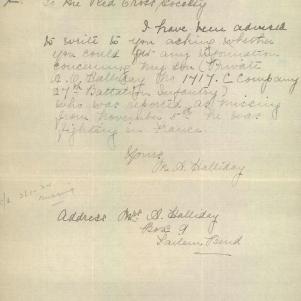 To the Red Cross Society
I have been advised
to write to you asking whether
you could give any information
concerning my son (Private
A. O. Halliday No 1717. C Company
27th Battalion Infantry)
who was reported as missing
from November 5th he was
fighting in France.
Yours
M. A. Halliday
missing
Address Mrs A. Halliday
Box 9
Tailem Bend